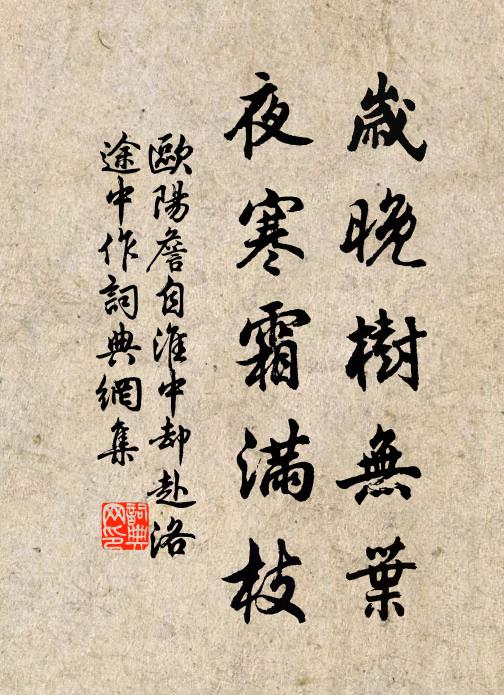 歲晚樹無葉
夜寒霜滿枝
歐陽詹自淮中卻赴洛
途中作詞典網集
詞典
网印